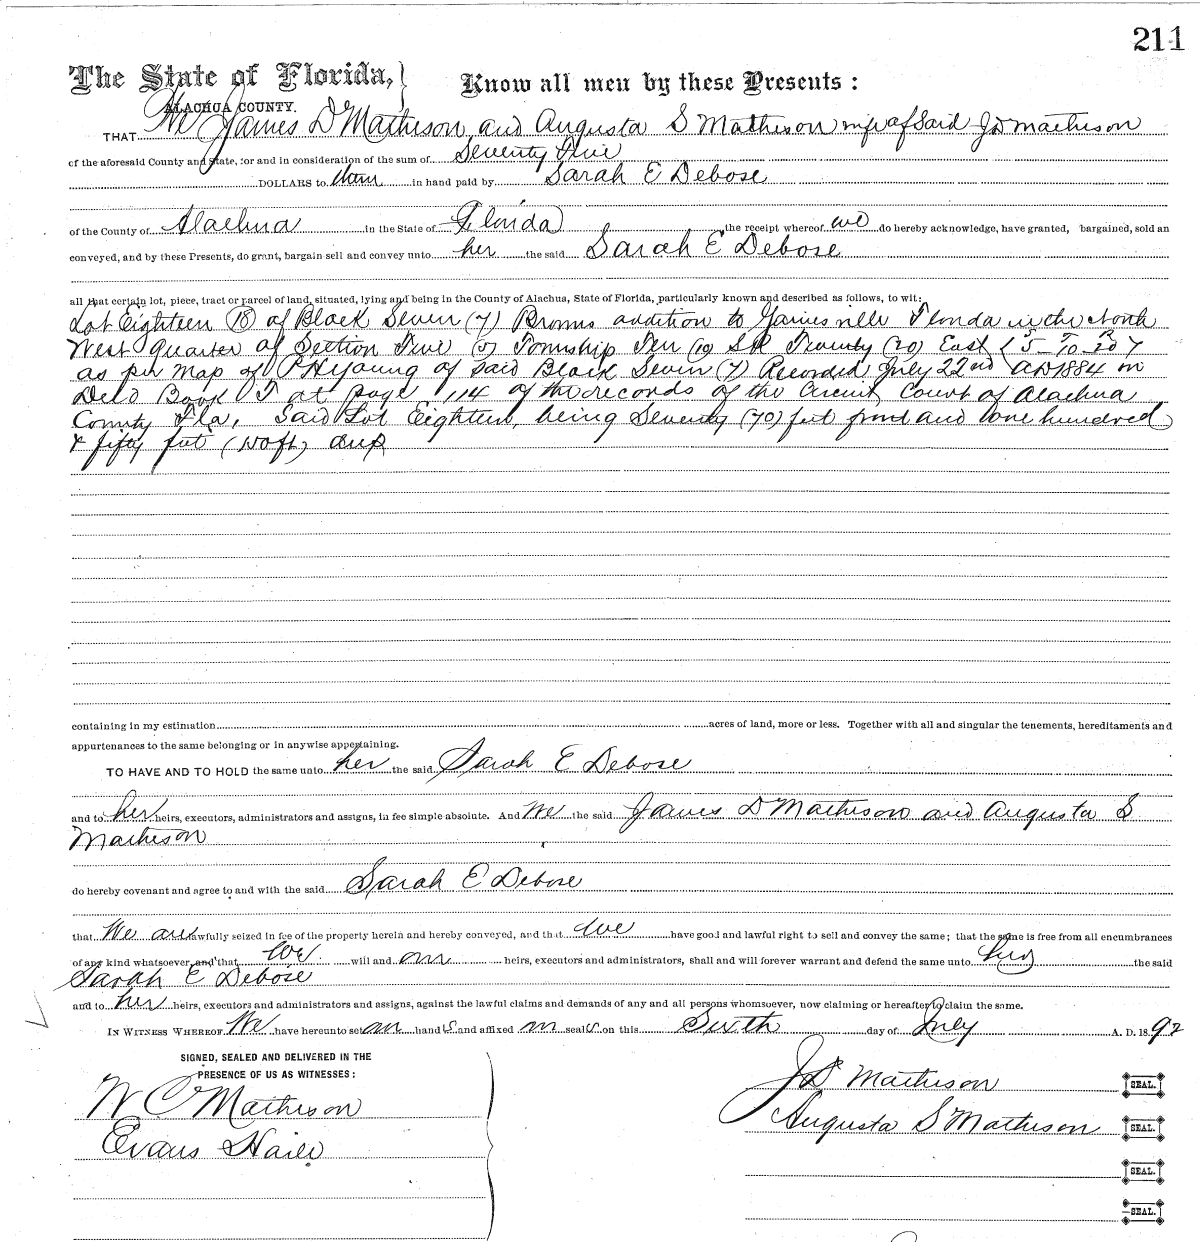 211
The State of Florida,} Know all men by these Presents :
ALACHUA COUNTY.
THAT We James D Matheson and Augusta S Matheson wife of Said J D Matheson
of the aforesaid County and State, for and in consideration of the sum of Seventy Five
DOLLARS to them in hand paid by Sarah E Debose
of the County of Alachua in the State of Florida the receipt whereof we do hereby acknowledge, have granted, bargained, sold an
conveyed, and by these Presents, do grant, bargain sell and convey unto her the said Sarah E Debose
all that certain lot, piece, tract or parcel of land, situated, lying and being in the County of Alachua, State of Florida, particularly known and described as follows, to wit:
Lot Eighteen (18) of Block Seven (7) Browns addition to Gainesville Florida in the North
West Quarter of Section Five (5) Township Ten (10) S R Twenty (20) East (5 - 10 - 20)
as per Map of P H Young of Said Block Seven (7) Recorded July 22nd AD 1884 in
Deed Book T at page 114 of the records of the Circuit Court of Alachua
County Fla, Said Lot Eighteen, being Seventy (70) feet front and one hundred
& fifty feet (150 ft) deep
containing in my estimation acres of land, more or less. Together with all and singular the tenements, hereditaments and
appurtenances to the same belonging or in anywise appertaining.
TO HAVE AND TO HOLD the same unto her the said Sarah E Debose
and to her heirs, executors, administrators and assigns, in fee simple absolute. And We the said James D Matheson and Augusta S
Matheson
do hereby covenant and agree to and with the said Sarah E Debose
that We are lawfully seized in fee of the property herein and hereby conveyed, and that We have good and lawful right to sell and convey the same; that the same is free from all encumbrances
of any kind whatsoever, and that We will and our heirs, executors and administrators, shall and will forever warrant and defend the same unto her the said
Sarah E Debose
and to her heirs, executors and administrators and assigns, against the lawful claims and demands of any and all persons whomsoever, now claiming or hereafter to claim the same.
IN WITNESS WHEREOF We have hereunto set our hands and affixed our seals on this Sixth day of July A. D. 1892
SIGNED, SEALED AND DELIVERED IN THE
PRESENCE OF US AS WITNESSES :
J D Matheson SEAL.
W C Matheson
Augusta S Matheson SEAL.
Evans Haile
SEAL.
SEAL.